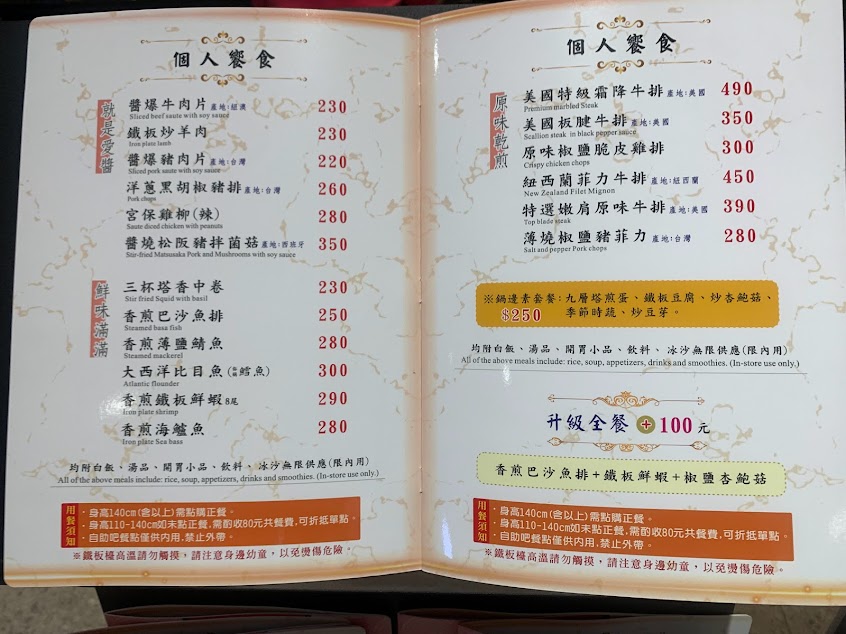 個人饗食
就是愛醬
醬爆牛肉片 產地:紐澳 230
Sliced beef saute with soy sauce
鐵板炒羊肉 230
Iron plate lamb
醬爆豬肉片 產地:台灣 220
Sliced pork saute with soy sauce
洋蔥黑胡椒豬排 產地:台灣 260
Pork chops
宮保雞柳(辣) 280
Saute diced chicken with peanuts
醬燒松阪豬拌菌菇 產地:西班牙 350
Stir-fried Matsusaka Pork and Mushrooms with soy sauce
鮮味滿滿
三杯塔香中卷 230
Stir fried Squid with basil
香煎巴沙魚排 250
Steamed basa fish
香煎薄鹽鯖魚 280
Steamed mackerel
大西洋比目魚(扁鱈魚) 300
Atlantic flounder
香煎鐵板鮮蝦 8尾 290
Iron plate shrimp
香煎海鱸魚 280
Iron plate Sea bass
均附白飯、湯品、開胃小品、飲料、冰沙無限供應(限內用)
All of the above meals include: rice, soup, appetizers, drinks and smoothies. (In-store use only.)
用餐須知
・身高140cm(含以上)需點購正餐。
・身高110-140cm如未點正餐,需酌收80元共餐費,可折抵單點。
・自助吧餐點僅供內用,禁止外帶。
※鐵板檯高溫請勿觸摸，請注意身邊幼童，以免燙傷危險。
個人饗食
原味乾煎
美國特級霜降牛排 產地:美國 490
Premium marbled Steak
美國板腱牛排 產地:美國 350
Scallion steak in black pepper sauce
原味椒鹽脆皮雞排 300
Crispy chicken chops
紐西蘭菲力牛排 產地:紐西蘭 450
New Zealand Filet Mignon
特選嫩肩原味牛排 產地:美國 390
Top blade steak
薄燒椒鹽豬菲力 產地:台灣 280
Salt and pepper Pork chops
※鍋邊素套餐:九層塔煎蛋、鐵板豆腐、炒杏鮑菇、
$250 季節時蔬、炒豆芽。
均附白飯、湯品、開胃小品、飲料、冰沙無限供應(限內用)
All of the above meals include: rice, soup, appetizers, drinks and smoothies. (In-store use only.)
升級全餐+100元
香煎巴沙魚排+鐵板鮮蝦+椒鹽杏鮑菇
用餐須知
・身高140cm(含以上)需點購正餐。
・身高110-140cm如未點正餐,需酌收80元共餐費,可折抵單點。
・自助吧餐點僅供內用,禁止外帶。
※鐵板檯高溫請勿觸摸，請注意身邊幼童，以免燙傷危險。